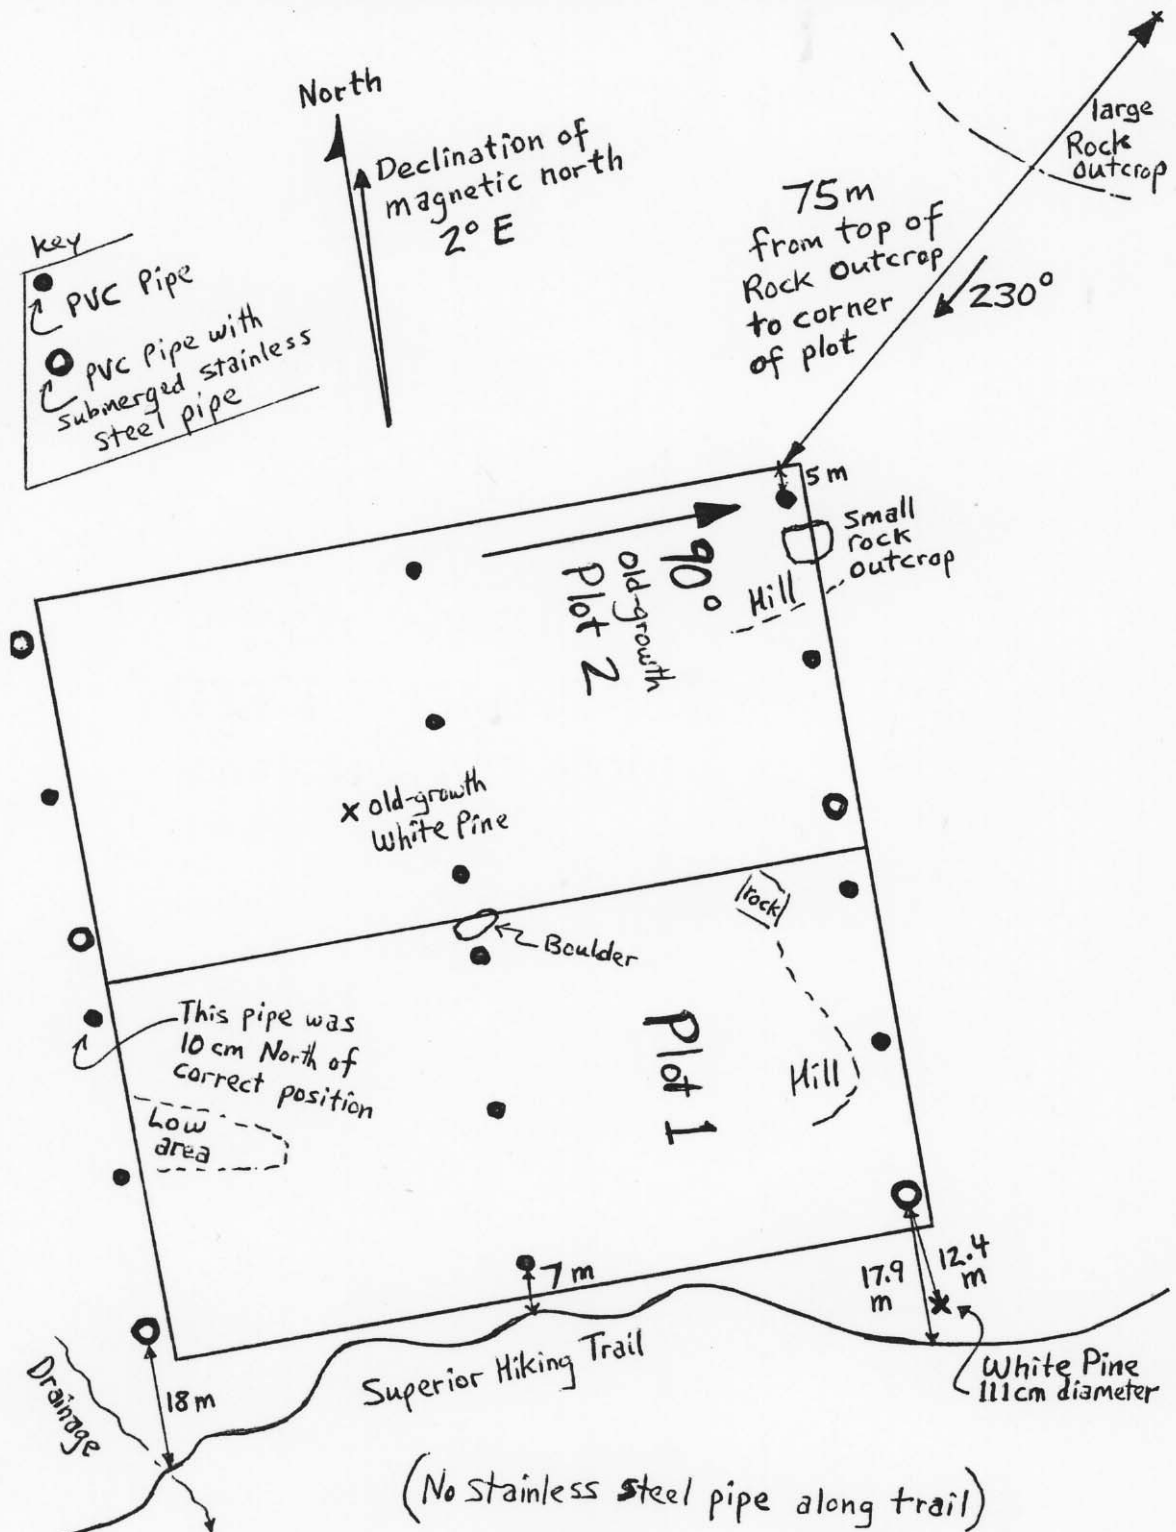 North
Declination of
magnetic north
2° E
key
PVC Pipe
PVC Pipe with
submerged stainless
steel pipe
large
Rock
outcrop
75m
from top of
Rock Outcrop
to corner
of plot
230°
5 m
small
rock
outcrop
Hill
90°
old-growth
Plot 2
x old-growth
White Pine
rock
Boulder
This pipe was
10 cm North of
correct position
Low
area
Plot 1
Hill
7 m
17.9
m
12.4
m
18 m
Drainage
Superior Hiking Trail
White Pine
111cm diameter
(No stainless steel pipe along trail)